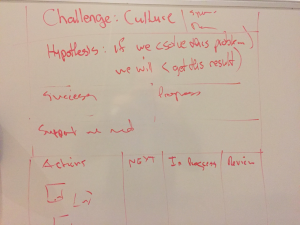 Challenge: Culture
Hypothesis: if we <solve this problem>
we will <get this result>
Success Progress
Support we need
Actions Next In Progress Review